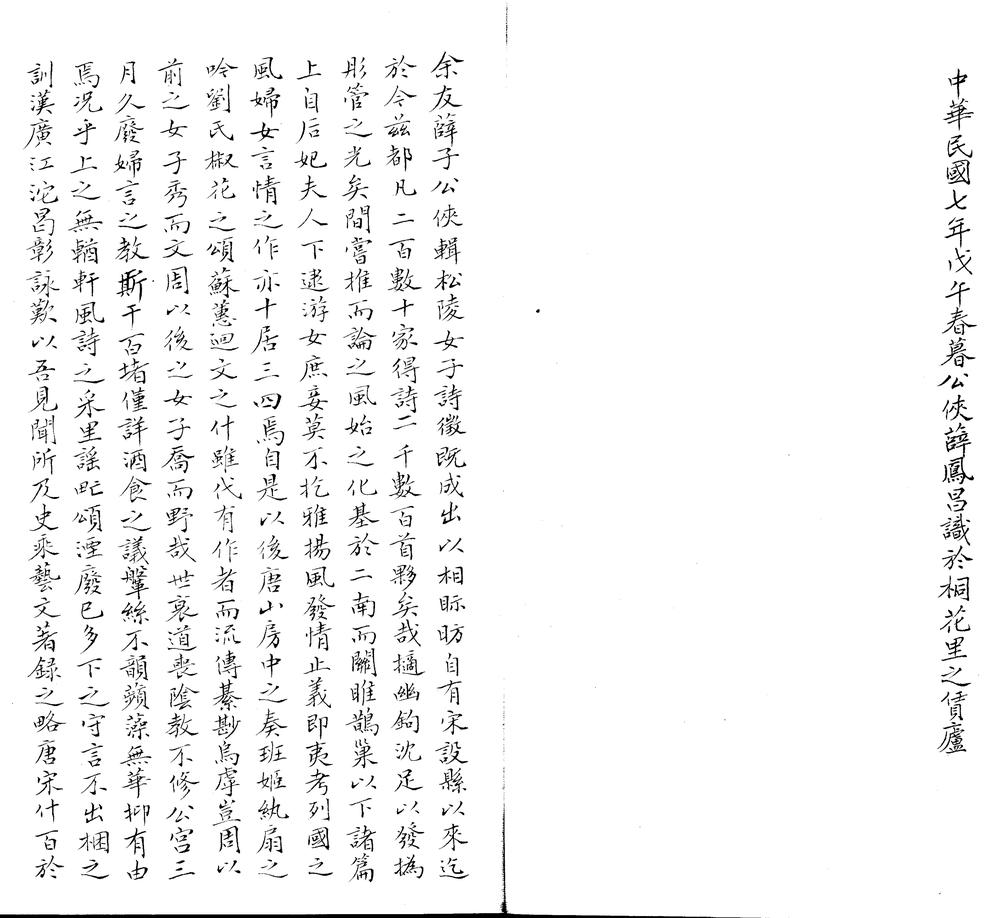 中華民國七年戊午春暮公俠薛鳳昌識於桐花里之賃廬
余友薛子公俠輯松陵女子詩徵既成出以相眎昉自有宋設縣以來迄
於今茲都凡二百數十家得詩二千數百首夥矣哉擿幽鉤沈足以發撝
彤管之光矣間嘗推而論之風始之化基於二南而關雎鵲巢以下諸篇
上自后妃夫人下逮游女庶妾莫不扢雅揚風發情止義即夷考列國之
風婦女言情之作亦十居三四焉自是以後唐山房中之奏班姬紈扇之
吟劉氏椒花之頌蘇蕙迴文之什雖代有作者而流傳綦尠烏虖豈周以
前之女子秀而文周以後之女子喬而野哉世衰道喪陰教不修公宮三
月久廢婦言之教斯干百堵僅詳酒食之議鞶絲不韻蘋藻無華抑有由
焉況乎上之無輶軒風詩之采里謠甿頌湮廢已多下之守言不出梱之
訓漢廣江沱曷彰詠歎以吾見聞所及史乘藝文著錄之略唐宋什百於